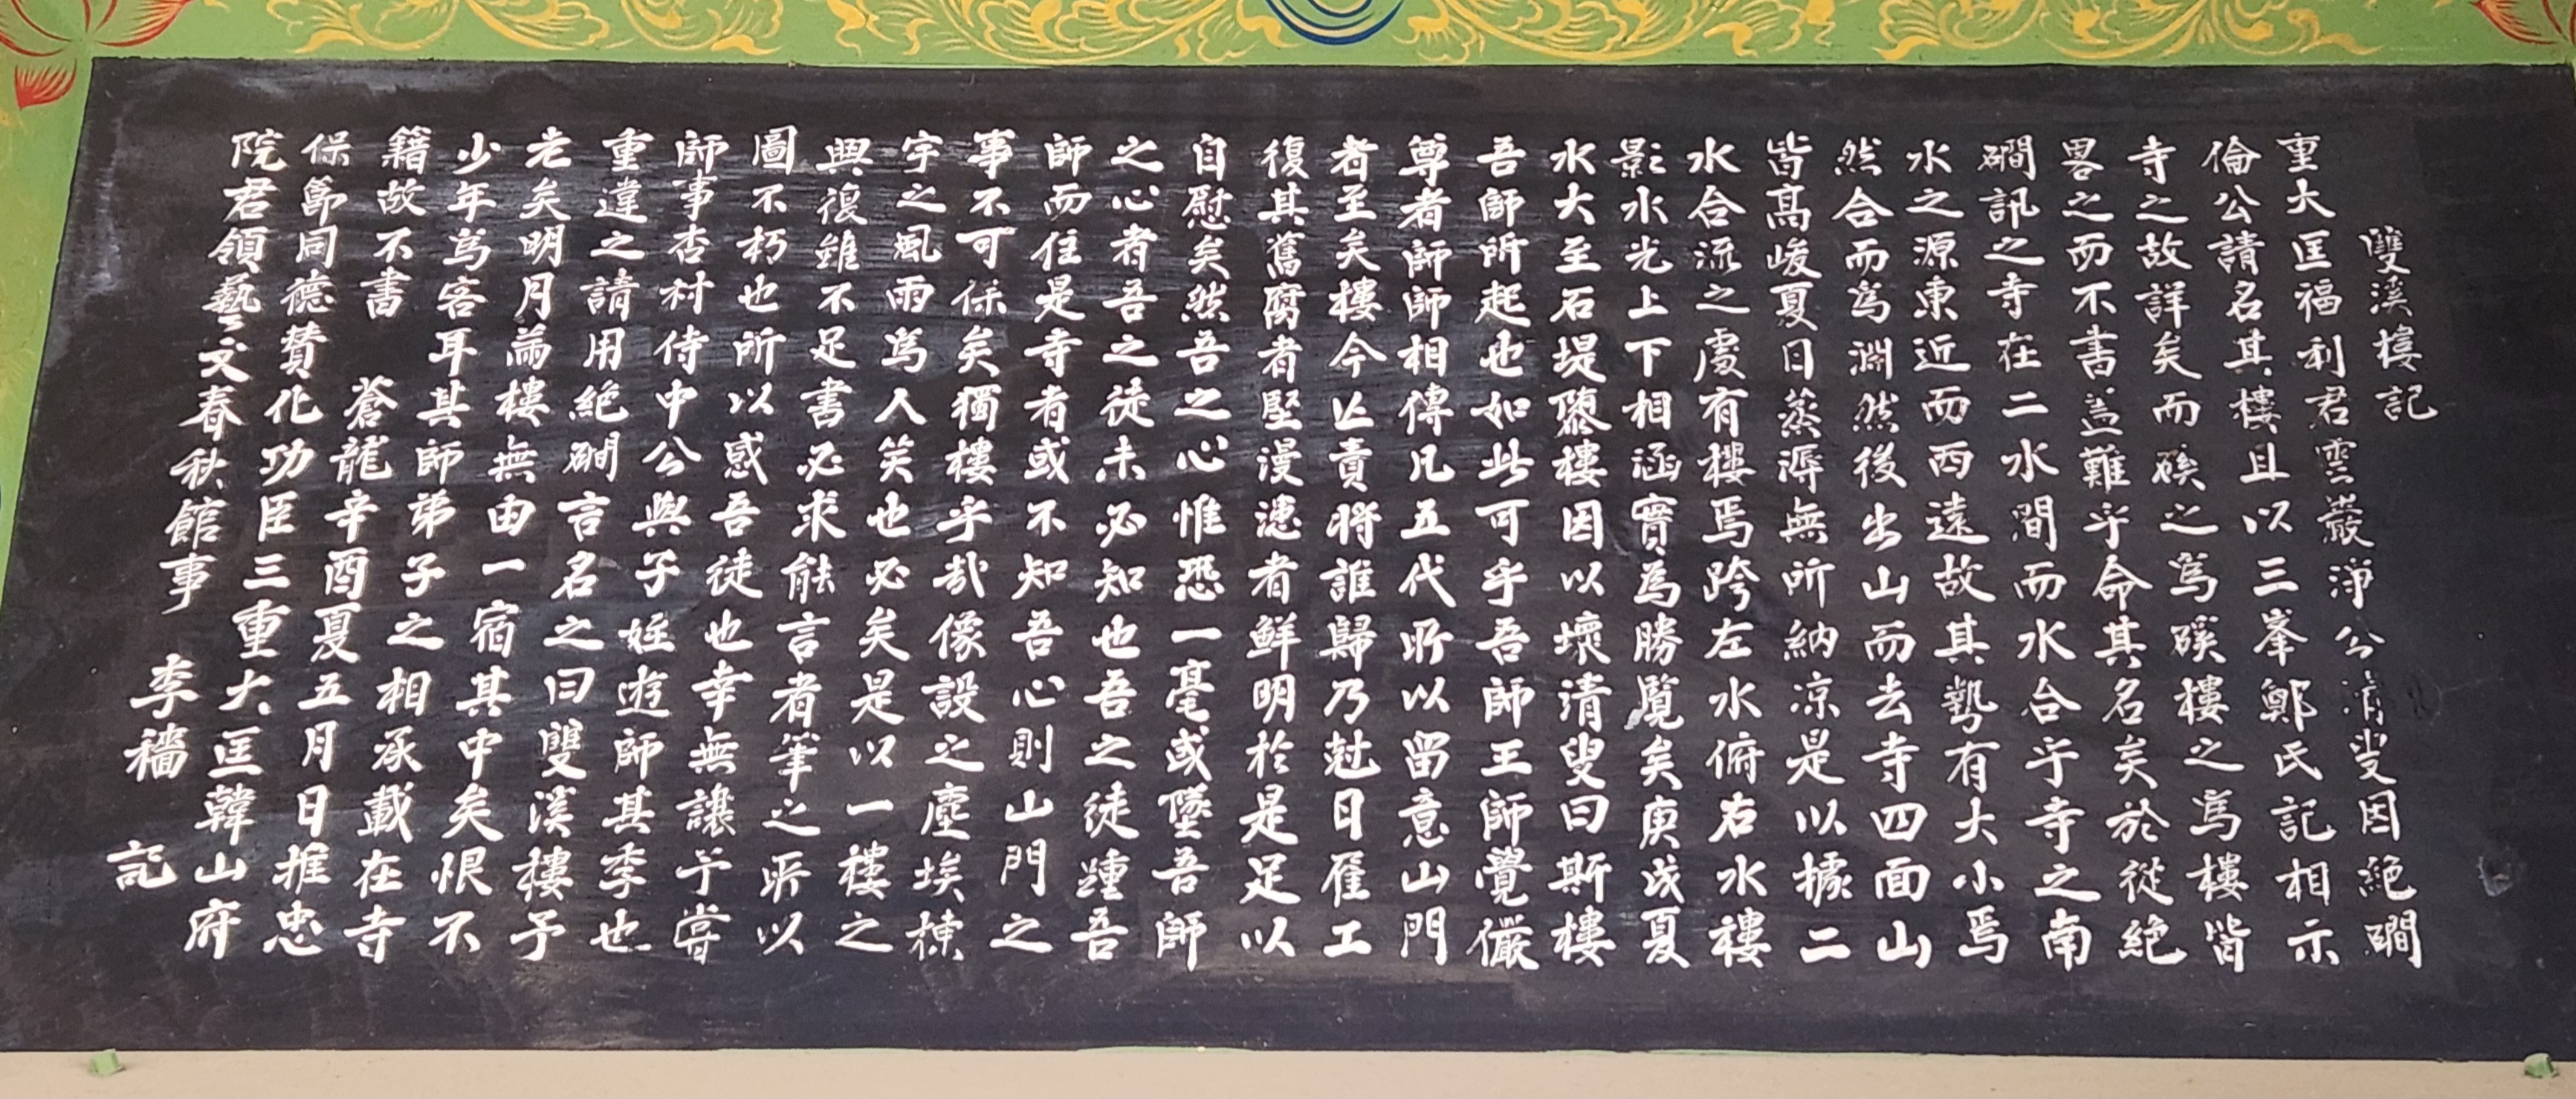 雙溪樓記
重大匡福利君雲巖淨公清叟因絶磵
倫公請名其樓且以三峯鄭氏記相示
寺之故詳矣而磎之爲磎樓之爲樓皆
畧之而不書盖難乎命其名矣於從絶
磵訊之寺在二水間而水合乎寺之南
水之源東近而西遠故其㔟有大小焉
然合而爲淵然後出山而去寺四面山
皆髙峻夏日蒸溽無所納凉是以據二
水合流之處有樓焉跨左水俯右水樓
影水光上下相涵實為勝覧矣庚戌夏
水大至石堤隳樓因以壞清叟曰斯樓
吾師所起也如此可乎吾師王師覺儼
尊者師師相傳凡五代所以留意山門
者至矣樓今亾責將誰歸乃尅日雇工
復其舊腐者堅漫漶者鮮明於是足以
自慰矣然吾之心惟恐一毫或墜吾師
之心者吾之徒未必知也吾之徒踵吾
師而住是寺者或不知吾心則山門之
事不可保矣獨樓乎哉像設之塵埃棟
宇之風雨爲人笑也必矣是以一樓之
興復雖不足書必求能言者筆之所以
圖不朽也所以惑吾徒也幸無讓予嘗
師事杏村侍中公與子姪遊師其季也
重違之請用絶磵言名之曰雙溪樓予
老矣明月滿樓無由一宿其中矣恨不
少年爲客耳其師弟子之相承載在寺
籍故不書 蒼龍辛酉夏五月日推忠
保節同德賛化功臣三重大匡韓山府
院君領藝文春秋館事 李穡 記